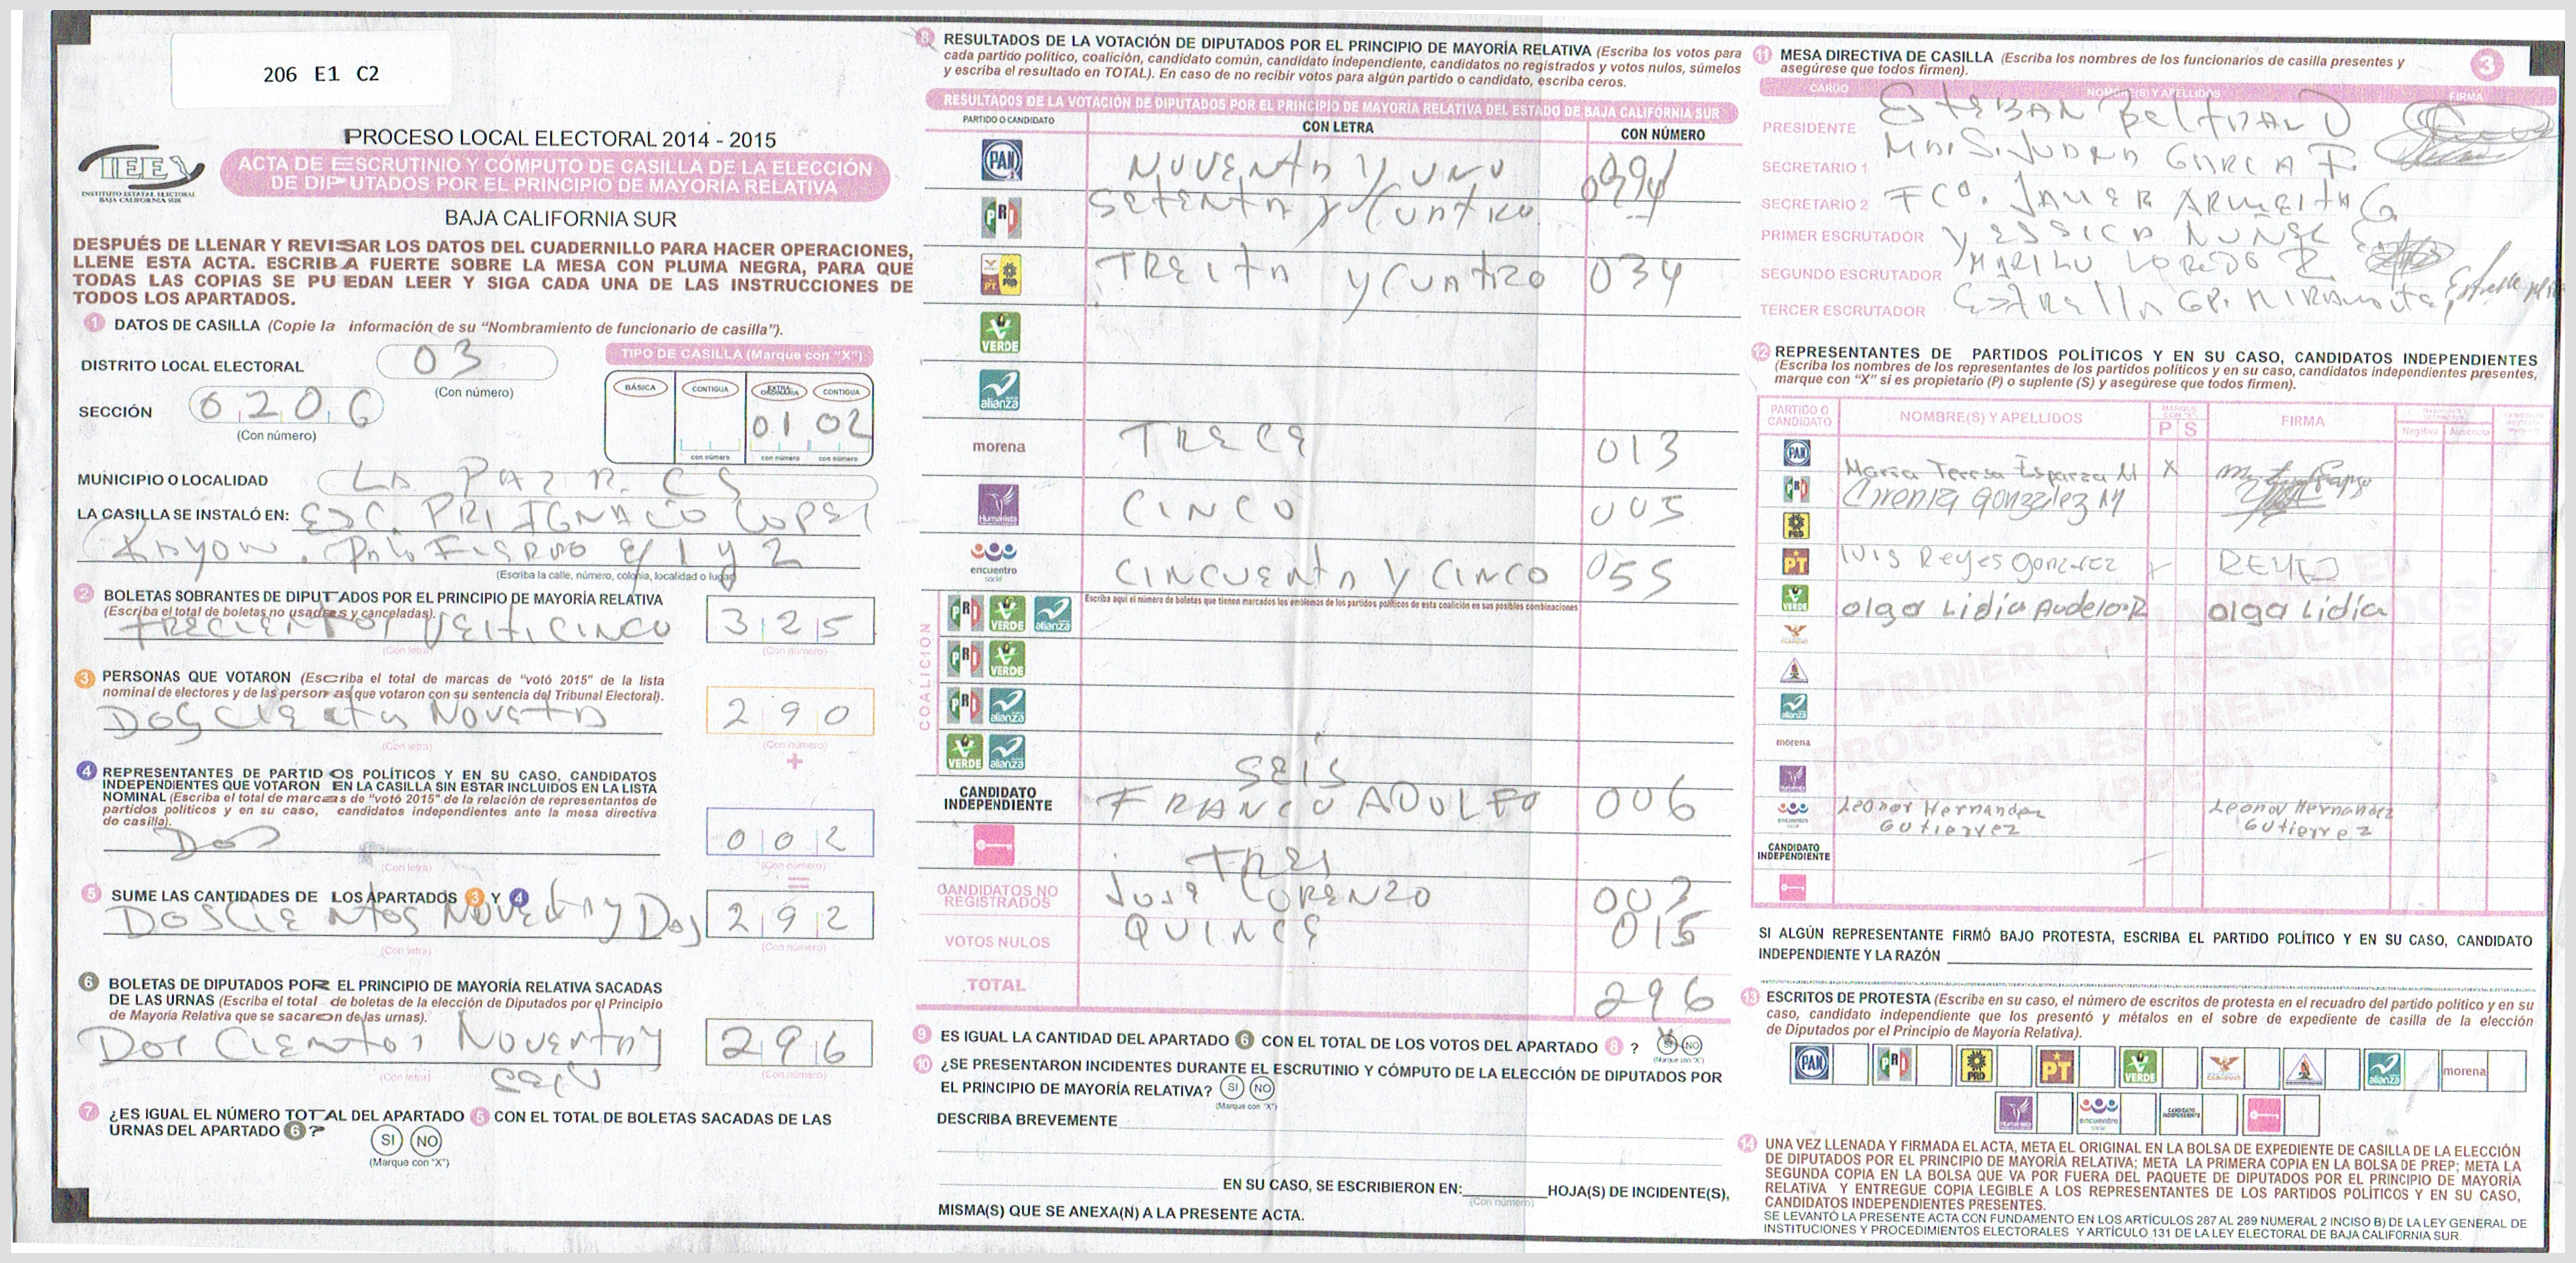 206 E1 C2
PROCESO LOCAL ELECTORAL 2014 - 2015
IEE
INSTITUTO ESTATAL ELECTORAL
BAJA CALIFORNIA SUR
ACTA DE ESCRUTINIO Y CÓMPUTO DE CASILLA DE LA ELECCIÓN
DE DIPUTADOS POR EL PRINCIPIO DE MAYORÍA RELATIVA
BAJA CALIFORNIA SUR
DESPUÉS DE LLENAR Y REVISAR LOS DATOS DEL CUADERNILLO PARA HACER OPERACIONES,
LLENE ESTA ACTA. ESCRIBA FUERTE SOBRE LA MESA CON PLUMA NEGRA, PARA QUE
TODAS LAS COPIAS SE PUEDAN LEER Y SIGA CADA UNA DE LAS INSTRUCCIONES DE
TODOS LOS APARTADOS.
1 DATOS DE CASILLA (Copie la información de su "Nombramiento de funcionario de casilla").
DISTRITO LOCAL ELECTORAL 03
(Con número)
SECCIÓN 0206
(Con número)
TIPO DE CASILLA (Marque con "X")
BÁSICA CONTIGUA EXTRAORDINARIA CONTIGUA
01 02
con número con número con número
MUNICIPIO O LOCALIDAD LA PAZ B. CS
LA CASILLA SE INSTALÓ EN: ESC. PRI IGNACIO LOPEZ
RAYON. e/ 1 y 2
(Escriba la calle, número, colonia, localidad o lugar)
2 BOLETAS SOBRANTES DE DIPUTADOS POR EL PRINCIPIO DE MAYORÍA RELATIVA
(Escriba el total de boletas no usadas y canceladas).
TRECIENTOS VEITICINCO 325
(Con letra) (Con número)
3 PERSONAS QUE VOTARON (Escriba el total de marcas de "votó 2015" de la lista
nominal de electores y de las personas que votaron con su sentencia del Tribunal Electoral).
DOSCIENTOS NOVETA 290
(Con letra) (Con número)
+
4 REPRESENTANTES DE PARTIDOS POLÍTICOS Y EN SU CASO, CANDIDATOS
INDEPENDIENTES QUE VOTARON EN LA CASILLA SIN ESTAR INCLUIDOS EN LA LISTA
NOMINAL (Escriba el total de marcas de "votó 2015" de la relación de representantes de
partidos políticos y en su caso, candidatos independientes ante la mesa directiva
de casilla).
DOS 002
(Con letra) (Con número)
=
5 SUME LAS CANTIDADES DE LOS APARTADOS 3 Y 4
DOSCIENTOS NOVENTA y DOS 292
(Con letra) (Con número)
6 BOLETAS DE DIPUTADOS POR EL PRINCIPIO DE MAYORÍA RELATIVA SACADAS
DE LAS URNAS (Escriba el total de boletas de la elección de Diputados por el Principio
de Mayoría Relativa que se sacaron de las urnas).
Dos Cientos Noventa y 296
(Con letra) (Con número)
7 ¿ES IGUAL EL NÚMERO TOTAL DEL APARTADO 5 CON EL TOTAL DE BOLETAS SACADAS DE LAS
URNAS DEL APARTADO 6 ?
SI NO
(Marque con "X")
8 RESULTADOS DE LA VOTACIÓN DE DIPUTADOS POR EL PRINCIPIO DE MAYORÍA RELATIVA (Escriba los votos para
cada partido político, coalición, candidato común, candidato independiente, candidatos no registrados y votos nulos, súmelos
y escriba el resultado en TOTAL). En caso de no recibir votos para algún partido o candidato, escriba ceros.
RESULTADOS DE LA VOTACIÓN DE DIPUTADOS POR EL PRINCIPIO DE MAYORÍA RELATIVA DEL ESTADO DE BAJA CALIFORNIA SUR
PARTIDO O CANDIDATO CON LETRA CON NÚMERO
PAN NOVENTA Y UNO 091
PRI SETENTA Y CUATRO
PT PRD TREITA Y CUATRO 034
VERDE
alianza
morena TRECE 013
Humanista CINCO 005
encuentro social CINCUENTA Y CINCO 055
COALICIÓN
Escriba aquí el número de boletas que tienen marcados los emblemas de los partidos políticos de esta coalición en sus posibles combinaciones
PRI VERDE alianza
PRI VERDE
PRI alianza
VERDE alianza
SEIS
CANDIDATO INDEPENDIENTE FRANCO ADOLFO 006
TRES
CANDIDATOS NO REGISTRADOS JOSE LORENZO 003
VOTOS NULOS QUINCE 015
TOTAL 296
9 ES IGUAL LA CANTIDAD DEL APARTADO 6 CON EL TOTAL DE LOS VOTOS DEL APARTADO 8 ? SI NO
(Marque con "X")
10 ¿SE PRESENTARON INCIDENTES DURANTE EL ESCRUTINIO Y CÓMPUTO DE LA ELECCIÓN DE DIPUTADOS POR
EL PRINCIPIO DE MAYORÍA RELATIVA? SI NO
(Marque con "X")
DESCRIBA BREVEMENTE
EN SU CASO, SE ESCRIBIERON EN: HOJA(S) DE INCIDENTE(S),
(Con número)
MISMA(S) QUE SE ANEXA(N) A LA PRESENTE ACTA.
11 MESA DIRECTIVA DE CASILLA (Escriba los nombres de los funcionarios de casilla presentes y
asegúrese que todos firmen).
3
CARGO NOMBRE(S) Y APELLIDOS FIRMA
PRESIDENTE ESTEBAN BELTRAN
SECRETARIO 1 GARCIA
SECRETARIO 2 FCO. JAVIER
PRIMER ESCRUTADOR YESSICA NUÑEZ
SEGUNDO ESCRUTADOR MARILU
TERCER ESCRUTADOR ESTRELLA
12 REPRESENTANTES DE PARTIDOS POLÍTICOS Y EN SU CASO, CANDIDATOS INDEPENDIENTES
(Escriba los nombres de los representantes de los partidos políticos y en su caso, candidatos independientes presentes,
marque con "X" si es propietario (P) o suplente (S) y asegúrese que todos firmen).
PARTIDO O CANDIDATO NOMBRE(S) Y APELLIDOS P S FIRMA
PAN Maria Teresa Esparza M X
PRI Cirenia Gonzalez M
PRD
PT Luis Reyes Gonzalez REYES
VERDE olga Lidia Audelo R olga Lidia
alianza
morena
encuentro social Leonor Hernandez Gutierrez Leonor Hernandez Gutierrez
CANDIDATO INDEPENDIENTE
PRIMER COPIA PARA EL
PROGRAMA DE RESULTADOS
ELECTORALES PRELIMINARES
(PREP)
SI ALGÚN REPRESENTANTE FIRMÓ BAJO PROTESTA, ESCRIBA EL PARTIDO POLÍTICO Y EN SU CASO, CANDIDATO
INDEPENDIENTE Y LA RAZÓN
13 ESCRITOS DE PROTESTA (Escriba en su caso, el número de escritos de protesta en el recuadro del partido político y en su
caso, candidato independiente que los presentó y métalos en el sobre de expediente de casilla de la elección
de Diputados por el Principio de Mayoría Relativa).
PAN PRI PRD PT VERDE alianza morena
Humanista encuentro social CANDIDATO INDEPENDIENTE
14 UNA VEZ LLENADA Y FIRMADA EL ACTA, META EL ORIGINAL EN LA BOLSA DE EXPEDIENTE DE CASILLA DE LA ELECCIÓN
DE DIPUTADOS POR EL PRINCIPIO DE MAYORÍA RELATIVA; META LA PRIMERA COPIA EN LA BOLSA DE PREP; META LA
SEGUNDA COPIA EN LA BOLSA QUE VA POR FUERA DEL PAQUETE DE DIPUTADOS POR EL PRINCIPIO DE MAYORÍA
RELATIVA Y ENTREGUE COPIA LEGIBLE A LOS REPRESENTANTES DE LOS PARTIDOS POLÍTICOS Y EN SU CASO,
CANDIDATOS INDEPENDIENTES PRESENTES.
SE LEVANTÓ LA PRESENTE ACTA CON FUNDAMENTO EN LOS ARTÍCULOS 287 AL 289 NUMERAL 2 INCISO B) DE LA LEY GENERAL DE
INSTITUCIONES Y PROCEDIMIENTOS ELECTORALES Y ARTÍCULO 131 DE LA LEY ELECTORAL DE BAJA CALIFORNIA SUR.